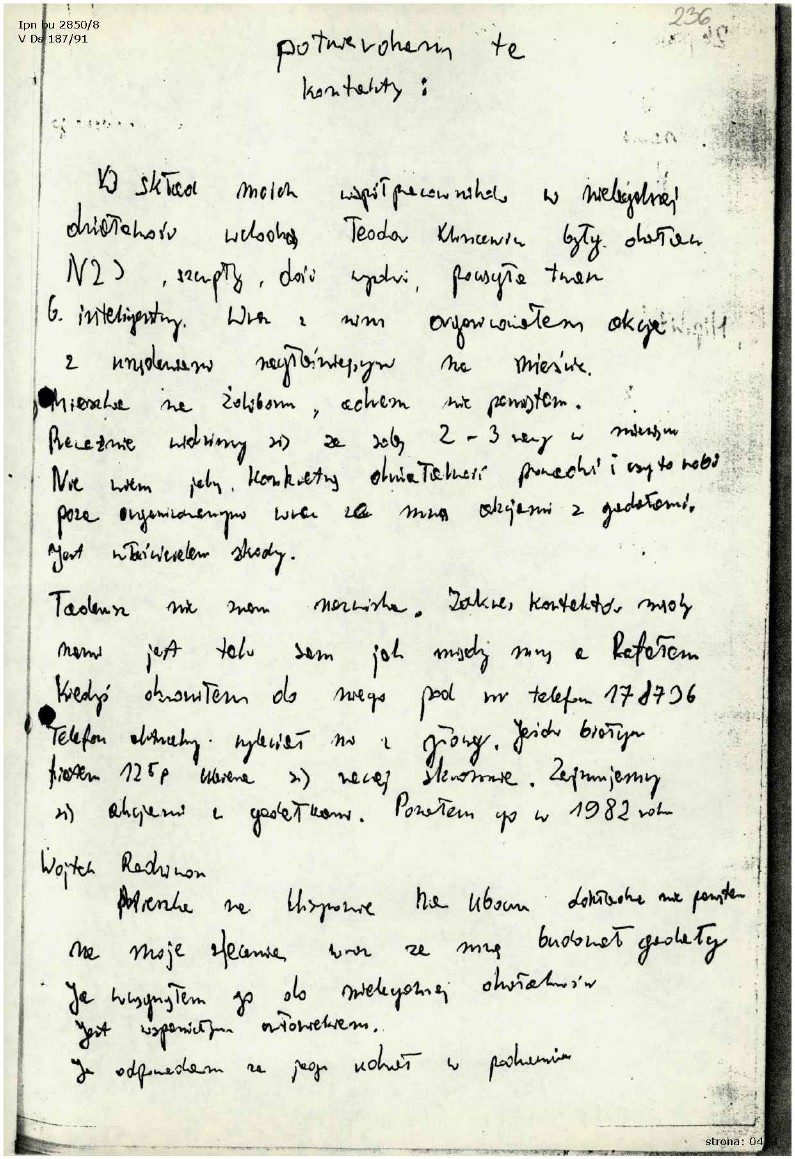 Ipn bu 2850/8
V Ds 187/91
236
potwierdzam te
kontakty :
W skład moich współpracowników w nielegalnej
działalności wchodzą Teodor Klincewicz były działacz
NZS, szczupły, dość wysoki, pociągła twarz
b. inteligentny. Wraz z nim organizowałem akcje
z urządzeniami nagłaśniającymi na mieście.
Mieszka na Żoliborzu, adresu nie pamiętam.
Przeciętnie widzimy się ze sobą 2 - 3 razy w miesiącu
Nie wiem jaką konkretną działalność prowadzi i czy to robi
poza organizowanymi wraz ze mną akcjami z gadałami.
Jest właścicielem skody.
Tadeusz nie znam nazwiska. Zakres kontaktów między
nami jest taki sam jak między mną a Rafałem
Kiedyś dzwoniłem do niego pod nr telefon 178736
Telefon aktualny wyleciał mi z głowy. Jeździ białym
fiatem 125p ubiera się raczej skromnie. Zajmujemy
się akcjami z gadałkami. Poznałem go w 1982 roku
Wojtek Radziwon
Mieszka na Ursynowie Na Uboczu dokładnie nie pamiętam
na moje zlecenie wraz ze mną budował gadały
Ja wciągnąłem go do nielegalnej działalności
Jest wspaniałym człowiekiem.
Ja odpowiadam za jego udział w podziemiu
strona: 04